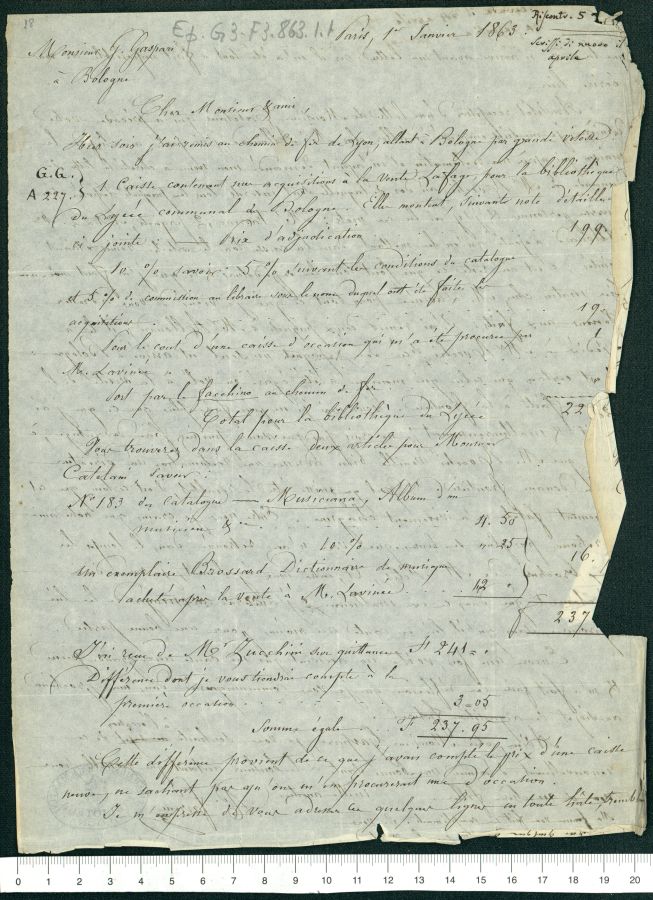 18
Ep. G3. F3. 863.1.1
Riscontr. 5
Scrissi di nuovo il
aprile
Paris, 1er Janvier 1863.
Monsieur G. Gaspari
à Bologne
Cher Monsieur & ami,
Hier soir j'ai remis au chemin de fer de Lyon, allant à Bologne par grande vitesse
G.G.
A 227.
1 Caisse contenant mes acquisitions à la vente Lafage pour la bibliothèque
du Lycée communal de Bologne. Elle montait, suivante note détaillée
ci jointe Prix d'adjudication 199
10 % savoir: 5 % suivant les conditions du catalogue
et 5 % de commission au libraire sous le nom duquel ont été faites les
acquisitions 19
Pour le cout d'une caisse d'occasion qui m'a été procurée par
Mr. Lavinée
Port par le facchino au chemin de fer
Total pour la bibliothèque du Lycée 22
Vous trouverez dans la caisse deux articles pour Monsieur
Catelani savoir:
No 183 du catalogue — Musiciana, Album d'un
musicien &c 4. 50
10 % " 45
Un exemplaire Brossard Dictionnaire de musique 16.
acheté après la vente à M. Lavinée 12 "
237
J'ai reçu de Mr Zucchini sur quittance F 241 = "
Différence dont je vous tiendrai compte à la
première occasion 3=05
Somme égale F 237.95
Cette différence provient de ce que j'avais compté le prix d'une caisse
neuve, ne sachant pas qu'on m'en procurerait une d'occasion.
Je m'empresse de vous adresser ce quelques lignes en toute hâte